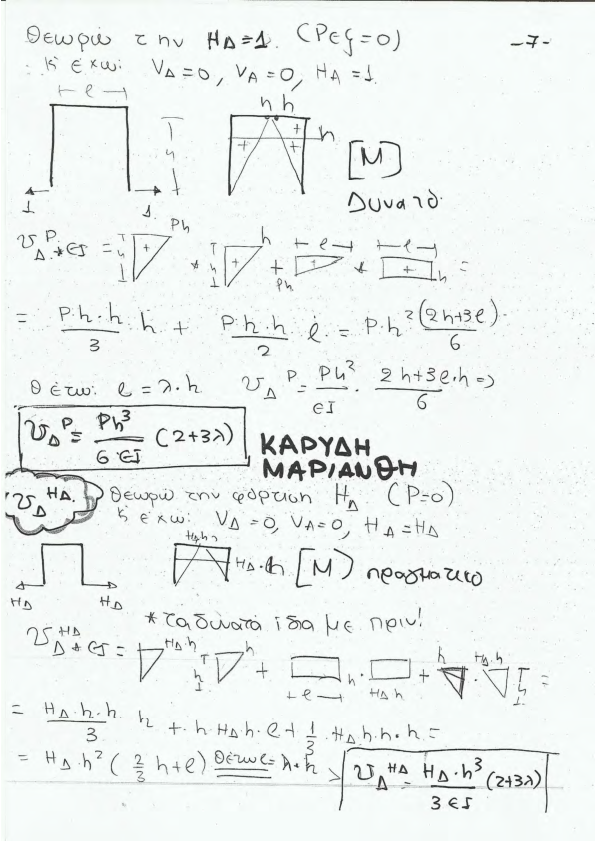 Θεωρώ την HΔ=1. (Ρεξ=0) -7-
κ' έχω: VΔ=0, VA=0, HA=1
l h h
h + + + h [M]
1 1 Δυνατό
υΔP * EI = h + Ph * h + h + l + Ph * l + h =
= P·h·h/3 · h + P·h·h/2 · l = P·h² (2h+3l)/6
Θέτω: l = λ·h υΔP = Ph²/EI · 2h+3l·h/6 =>
υΔP = Ph³/6EI (2+3λ)
ΚΑΡΥΔΗ
ΜΑΡΙΑΝΘΗ
υΔHΔ. Θεωρώ την φόρτιση HΔ (P=0)
κ' έχω: VΔ=0, VA=0, HA=HΔ
HΔ HΔ HΔ·h [M] πραγματικό
* τα δυνατά ίδια με πριν!
υΔHΔ * EI = HΔ·h h h + l h · HΔ·h + h · HΔ·h h =
= HΔ·h·h/3 h + h·HΔ·h·l + 1/3 HΔ·h·h·h =
= HΔ·h² (2/3 h+l) Θέτω l=λ·h > υΔHΔ = HΔ·h³/3EI (2+3λ)